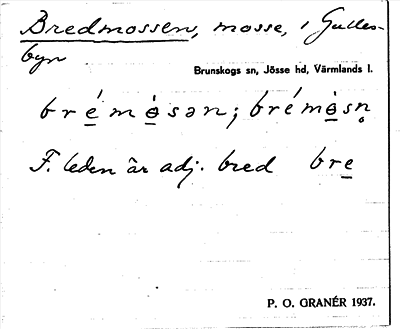 Bredmossen, mosse, i Gulles-
byn
Brunskogs sn, Jösse hd, Värmlands l.
bré̲mò̲sən; bré̲mò̲sn̥
F. leden är adj. bred bre̲
P. O. GRANÉR 1937.